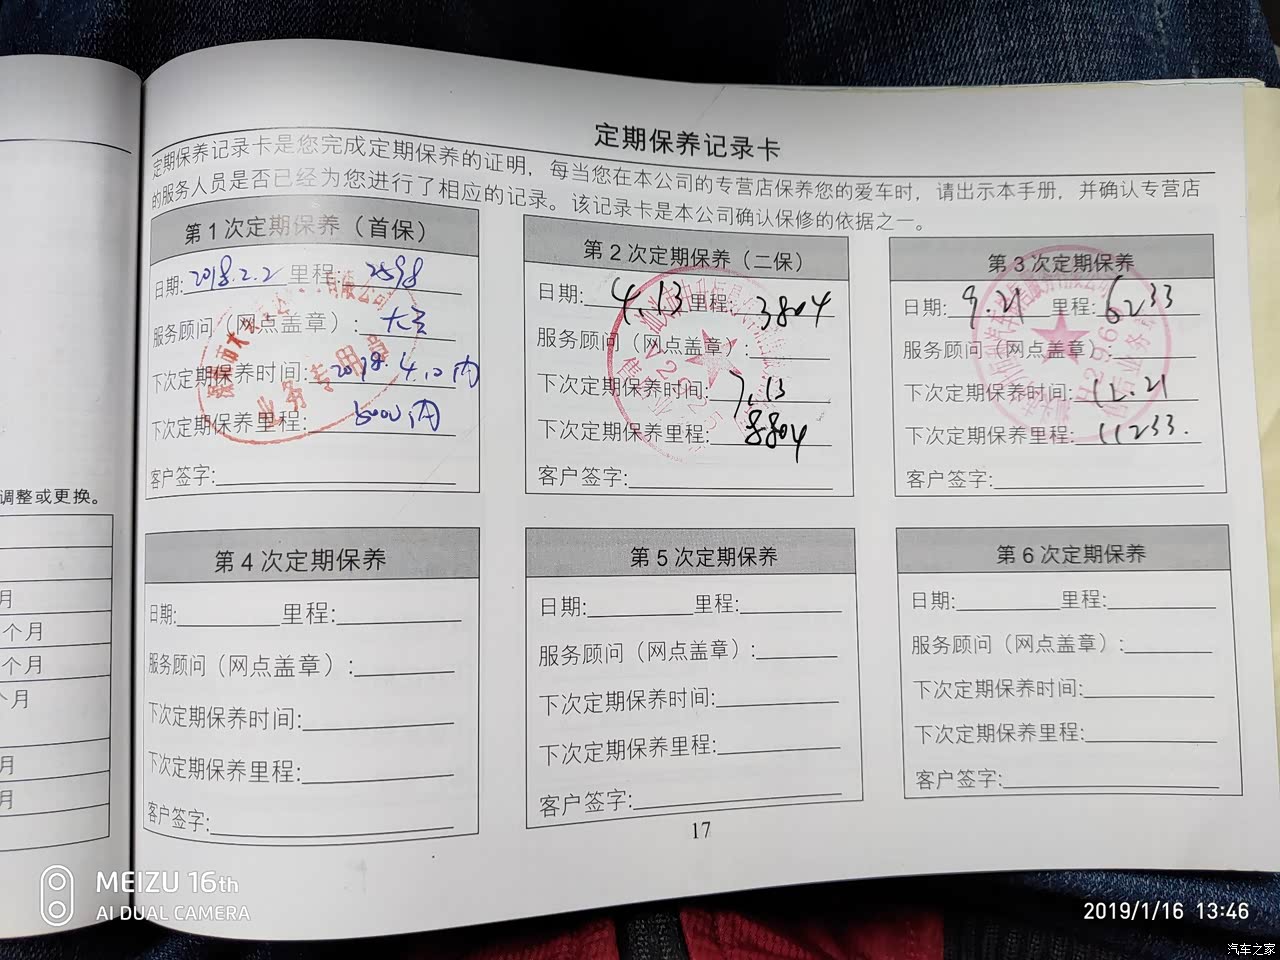 定期保养记录卡
定期保养记录卡是您完成定期保养的证明，每当您在本公司的专营店保养您的爱车时，请出示本手册，并确认专营店
的服务人员是否已经为您进行了相应的记录。该记录卡是本公司确认保修的依据之一。
第1次定期保养（首保）
日期:2018.2.2里程:2598
服务顾问（网点盖章）:
下次定期保养时间:2018.4.12内
下次定期保养里程:5000内
客户签字:
业务专用章
第2次定期保养（二保）
日期:4.13里程:3804
服务顾问（网点盖章）:
下次定期保养时间:7.13
下次定期保养里程:8804
客户签字:
第3次定期保养
日期:9.21里程:6233
服务顾问（网点盖章）:
下次定期保养时间:12.21
下次定期保养里程:11233.
客户签字:
H2966
第4次定期保养
日期:里程:
服务顾问（网点盖章）:
下次定期保养时间:
下次定期保养里程:
客户签字:
第5次定期保养
日期:里程:
服务顾问（网点盖章）:
下次定期保养时间:
下次定期保养里程:
客户签字:
第6次定期保养
日期:里程:
服务顾问（网点盖章）:
下次定期保养时间:
下次定期保养里程:
客户签字:
17
调整或更换。
月
个月
个月
个月
月
月
MEIZU 16th
AI DUAL CAMERA
2019/1/16 13:46
汽车之家